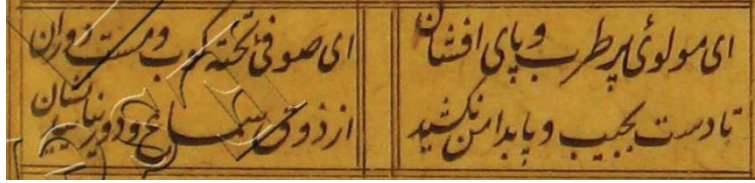 ای مولوئ پر طرب و پای افشان
ای صوفئ تخته کوب و مست دوران
تا دست بجیب و پا بدامن نکشید
از ذوق سماع و دور نیابید نشان